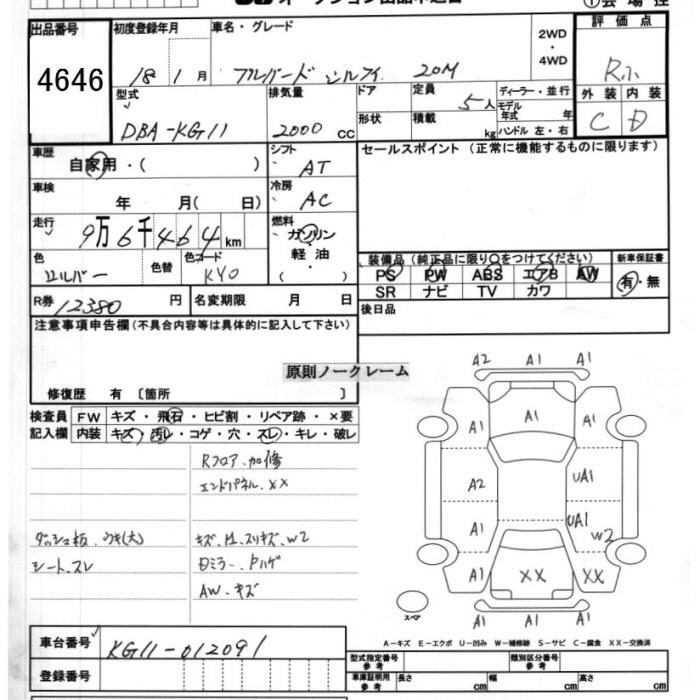 出品番号
4646
初度登録年月
18 1 月
車名・グレード
ブルバード シルフィ 20M
2WD
・
4WD
評価点
R小
型式
DBA-KG11
排気量
2000 cc
ドア
形状
定員
5人
積載
kg
ディーラー・並行
モデル年式 年
ハンドル 左・右
外装 内装
C D
車歴
自家用・( )
シフト
AT
セールスポイント(正常に機能するものに限ります)
車検
年 月( 日)
冷房
AC
走行
9万6千464km
燃料
ガソリン
軽油
・( )
色
シルバー
色替
色コード
KY0
装備品(純正品に限り○をつけてください)
新車保証書
PS PW ABS エアB AW
SR ナビ TV カワ
有・無
R券 12380 円
名変期限 月 日
後日品
注意事項申告欄(不具合内容等は具体的に記入して下さい)
原則ノークレーム
修復歴 有 〔箇所 〕
検査員
記入欄
FW キズ・飛石・ヒビ割・リペア跡・×要
内装 キズ・汚レ・コゲ・穴・スレ・キレ・破レ
Rフロア、加修
エンドパネル、XX
ダッシュ板、ウキ(大)
キズ、凹、スリキズ、W2
シート、スレ
Dミラー、Pハゲ
AW、キズ
A2 A1 A1
A1 A1 A1
A2 UA1
A1 UA1 W2
A1 XX XX
A1 A1 A1
スペア
A-キズ E-エクボ U-凹み W-補修跡 S-サビ C-腐食 XX-交換済
車台番号
KG11-012091
登録番号
型式指定番号
参考
類別区分番号
参考
車庫証明用
参考
長さ cm
幅 cm
高さ cm